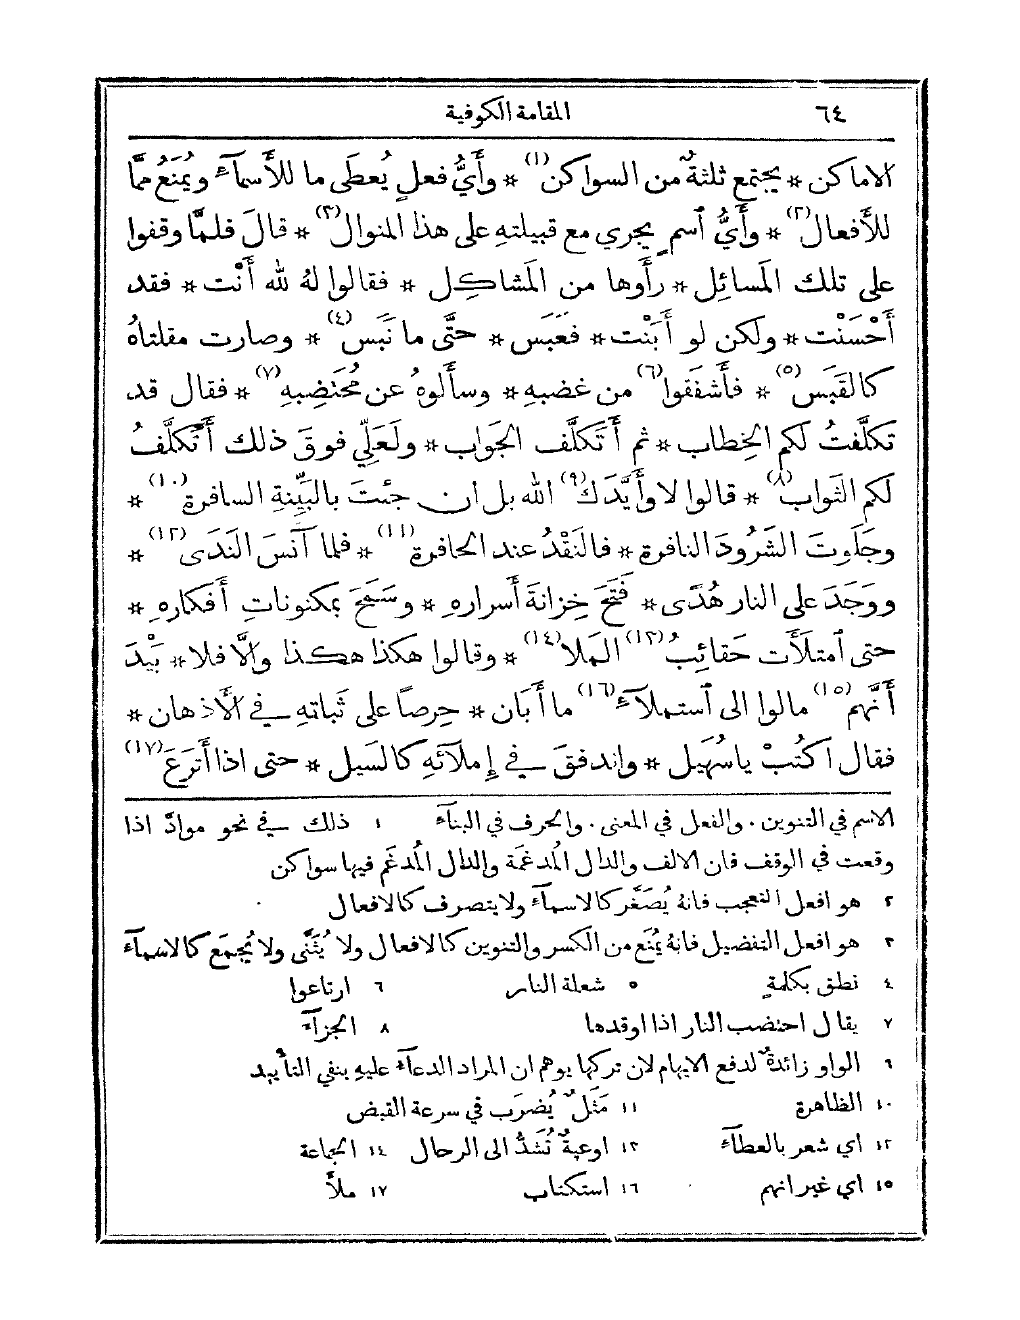 ٦٤ المقامة الكوفية
الاماكن * يجتمع ثلثةٌ من السواكن (١) * وأَيُّ فعلٍ يُعطَى ما للأَسمآء ويُمنَعُ ممَّا
للأَفعال (٢) * وأَيُّ ٱسمٍ يجري مع قبيلتهِ على هذا المنوال (٣) * قالَ فلمَّا وقفوا
على تلك المَسائل * رأَوها من المَشاكِل * فقالوا لهُ لله أَنْت * فقد
أَحْسَنْت * ولكن لو أَبَنْت * فعَبَس * حتَّى ما نَبَس (٤) * وصارت مقلتاهُ
كالقَبَس (٥) * فأَشفَقوا (٦) من غضبهِ * وسأَلوهُ عن مُحْتَضِبهِ (٧) * فقال قد
تكلَّفتُ لكم الخِطاب * ثم أَتَكلَّف الجَواب * ولَعَلّي فوقَ ذلك أَتَكلَّفُ
لكم الثَواب (٨) * قالوا لا وأَيَّدَك (٩) الله بل ان جئتَ بالبَيِّنةِ السافرة (١٠) *
وجَلَوتَ الشَرُودَ النافرة * فالنَقْدُ عند الحافرة (١١) * فلما آنَسَ النَدَى (١٢) *
ووَجَدَ على النار هُدًى * فَتَحَ خِزانةَ أَسرارهِ * وسَمَحَ بمكنوناتِ أَفكارهِ *
حتى ٱمتلَأَت حَقائِبُ (١٣) المَلا (١٤) * وقالوا هكذا هكذا والَّا فلا * بَيْدَ
أَنَّهم (١٥) مالوا الى ٱستملآء (١٦) ما أَبَان * حِرصًا على ثَباتهِ في الأَذهان *
فقال ٱكتُبْ يا سُهَيل * واندفقَ في إِملآئهِ كالسَيل * حتى اذا أَترَعَ (١٧)
الاسم في التنوين . والفعل في المعنى . والحرف في البنآء ١ ذلك في نحو موادّ اذا
وقعت في الوقف فان الالف والدال المُدغَمة والدال المُدغَم فيها سواكن
٢ هو افعل التعجب فانهُ يُصَغَّر كالاسمآء ولا يتصرف كالافعال
٣ هو افعل التفضيل فانهُ يُمنَع من الكسر والتنوين كالافعال ولا يُثنَّى ولا يُجمَع كالاسمآء
٤ نطق بكلمةٍ ٥ شعلة النار ٦ ارتاعوا
٧ يقال احتضب النار اذا اوقدها ٨ الجزآء
٩ الواو زائدةٌ لدفع الايهام لان تركها يوهم ان المراد الدعآء عليهِ بنفي التأييد
١٠ الظاهرة ١١ مَثَلٌ يُضرَب في سرعة القبض
١٢ اي شعر بالعطآء ١٣ اوعيةٌ تُشَدُّ الى الرحال ١٤ الجماعة
١٥ اي غير انهم ١٦ استكتاب ١٧ ملأَ